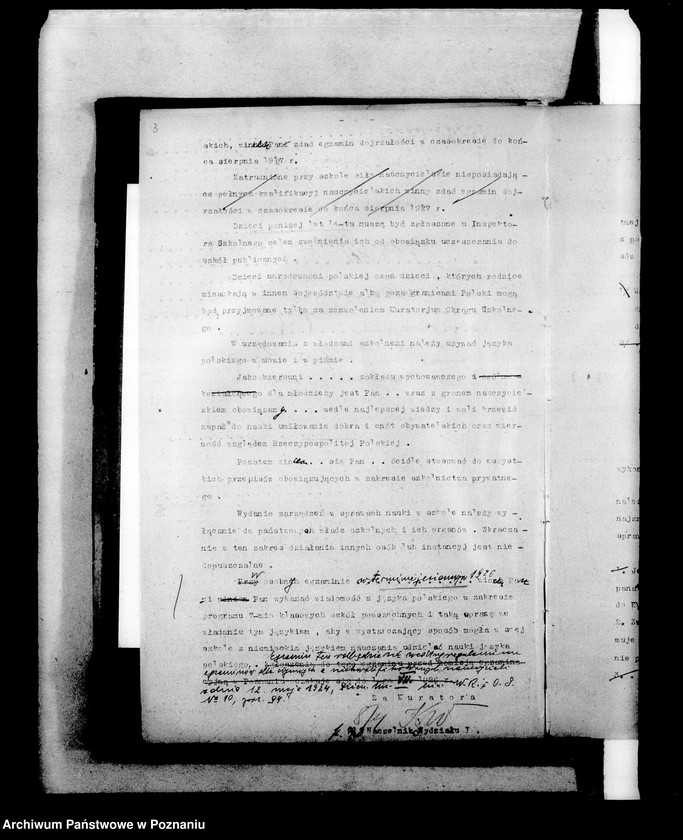 3
skich, winna Pani zdać egzamin dojrzałości w czasokresie do koń-
ca sierpnia 1927 r.
Zatrudnione przy szkole siły nauczycielskie nieposiadają -
ce pełnych kwalifikacyj nauczycielskich winny zdać egzamin doj-
rzałości w czasokresie do końca sierpnia 1927 r.
Dzieci poniżej lat 14-tu muszą być zgłoszone u Inspekto-
ra Szkolnego celem zwolnienia ich od obowiązku uczęszczania do
szkół publicznych .
Dzieci narodowości polskiej oraz dzieci , których rodzice
mieszkają w innem województwie albo poza granicami Polski mogą
być przyjmowane tylko za zezwoleniem Kuratorjum Okręgu Szkolne-
go .
W urzędowaniu z władzami szkolnemi należy używać języka
polskiego w mowie i w piśmie .
Jako kierowni . . . . . zakładu wychowawczego i
kształcącego dla młodzieży jest Pan . . wraz z gronem nauczyciel-
skiem obowiązany . . . wedle najlepszej wiedzy i woli krzewić
zapał do nauki umiłowanie dobra i cnót obywatelskich oraz wier-
ność względem Rzeczypospolitej Polskiej .
Pozatem winna . . się Pan . . ściśle stosować do wszyst-
kich przepisów obowiązujących w zakresie szkolnictwa prywatne-
go .
Wydanie zarządzeń w sprawach nauki w szkole należy wy -
łącznie do państwowych władz szkolnych i ich organów . Wkracza-
nie w ten zakres działania innych osób lub instancyj jest nie -
dopuszczalne .
Przy W osobnym egzaminie w terminie jesiennym 1926 winna Pani
wykazać wiadomości z języka polskiego w zakresie
programu 7-mio klasowych szkół powszechnych i taką wprawę we
władaniu tym językiem , aby w wystarczający sposób mogła w swej
szkole z niemieckim językiem nauczania udzielać nauki języka
polskiego .
Egzamin ten odbędzie się według regulaminu
egzaminów dla czynnych a niewykwalifikowanych nauczycieli
z dnia 12 maja 1924, Dzien. Urz. Min. W.R. i O.P.
No 10, poz. 94.
Za Kuratora
Naczelnik Wydziału I .
tnej
z po
sów
wykon
należ
najzn
spran
1. Je
pana
do Ky
2. Zw
muje
nie p
Archiwum Państwowe w Poznaniu